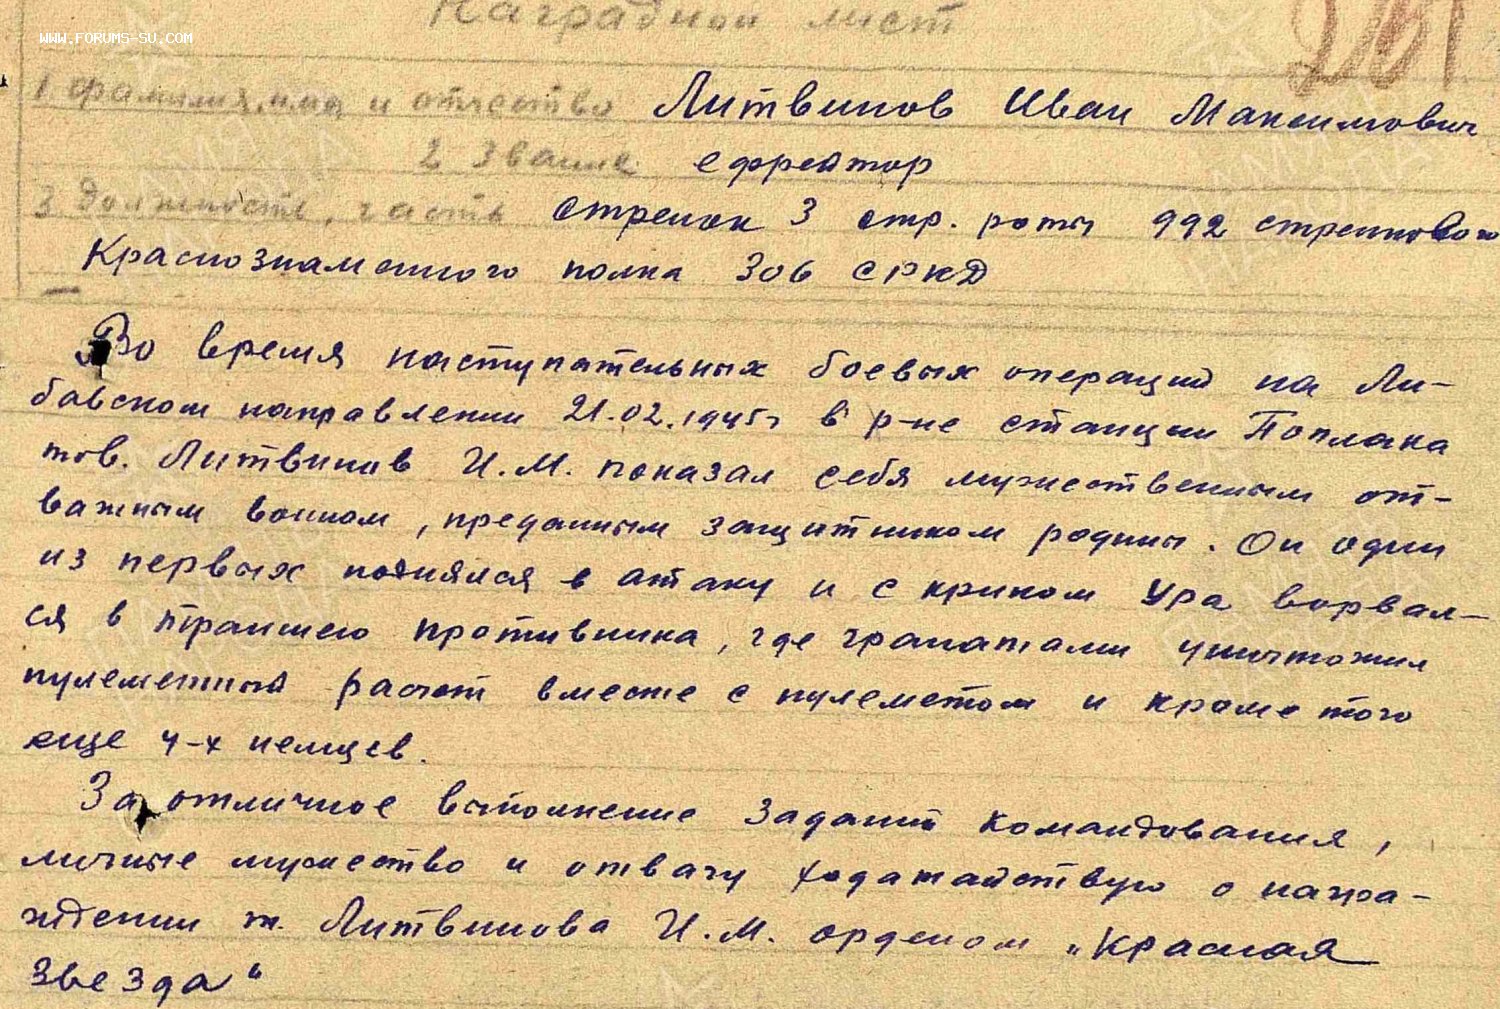 WWW.FORUMS-SU.COM
Наградной лист
1 фамилия, имя и отчество Литвинов Иван Максимович
2 Звание ефрейтор
3 должность, часть стрелок 3 стр. роты 992 стрелкового
Краснознаменного полка 306 СРКД
Во время наступательных боевых операций на Ли-
бавском направлении 21.02.1945г в р-не станции Поплака
тов. Литвинов И.М. показал себя мужественным от-
важным воином, преданным защитником родины. Он один
из первых поднялся в атаку и с криком Ура ворвал-
ся в траншею противника, где гранатами уничтожил
пулеметный расчет вместе с пулеметом и кроме того
еще 4-х немцев.
За отличное выполнение заданий командования,
личные мужество и отвагу ходатайствую о награ-
ждении т. Литвинова И.М. орденом „Красная
Звезда"